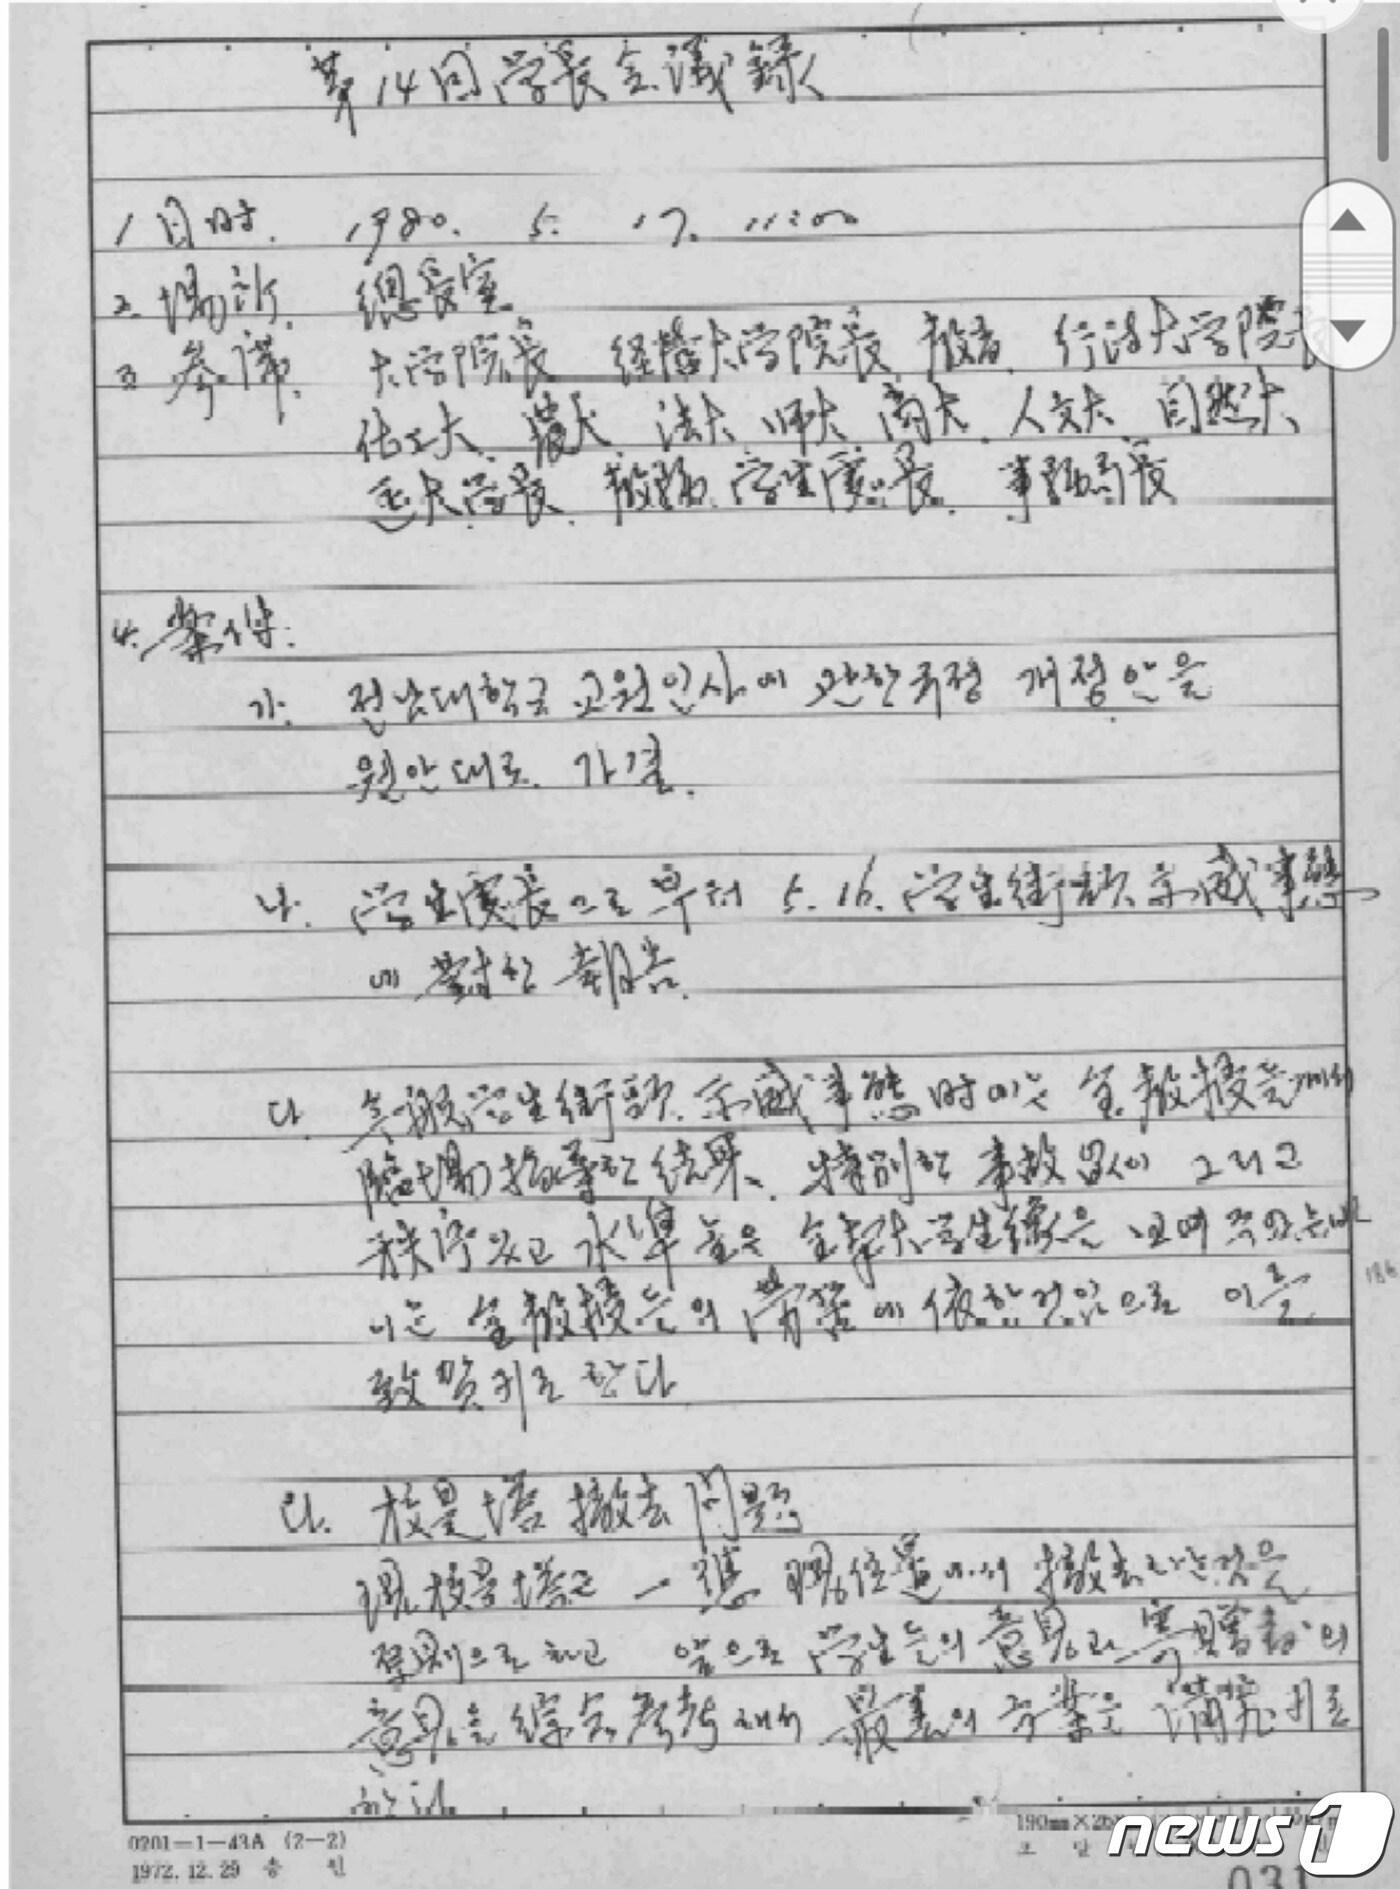 第14回 学長会議録
1. 日時. 1980. 5. 17. 11:00
2. 場所. 總長室
3. 参席. 大学院長 経営大学院長 教育 行政大学院長
化工大 農大 法大 師大 商大 人文大 自然大
医大学長 教務 学生処長 事務局長
4. 案件.
가. 전남대학교 교원인사에 관한 규정 개정안을
원안대로 가결.
나. 学生処長으로부터 5. 16. 学生街頭示威事態
에 對한 報告.
다. 今般 学生街頭示威事態時에는 全教授들께서
臨場指導한 結果, 特別한 事故없이 그리고
秩序있고 水準높은 全南大学生像을 보여 주었는바
이는 全教授들의 労苦에 依한것임으로 이를
致賀키로 한다
라. 校是塔 撤去問題
現校是塔은 一應 現位置에서 撤去하는것을
原則으로 하고 앞으로 学生들의 意見과 寄贈者의
意見을 綜合参考해서 最善의 方案을 講究키로
한다.
0201-1-43A (2-2)
1972. 12. 29 승인
190mm×26
186
031
news1